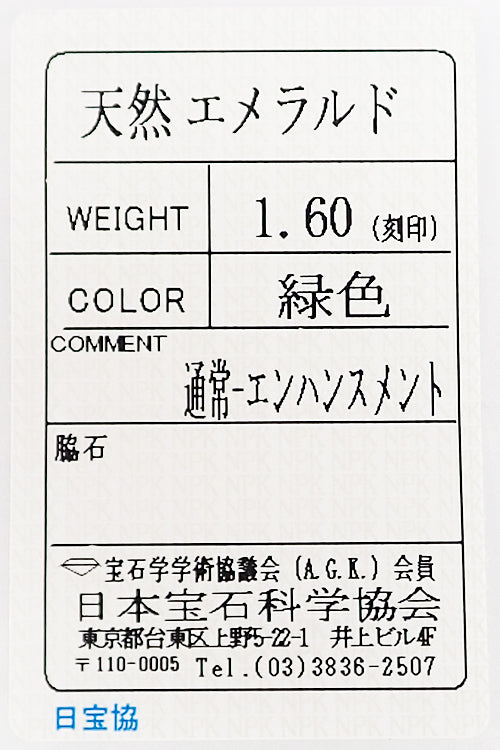 天然 エメラルド
WEIGHT 1.60 (刻印)
COLOR 緑色
COMMENT
通常-エンハンスメント
脇石
宝石学学術協議会 (A.G.K.) 会員
日本宝石科学協会
東京都台東区上野5-22-1 井上ビル4F
〒110-0005 Tel.(03)3836-2507
日宝協